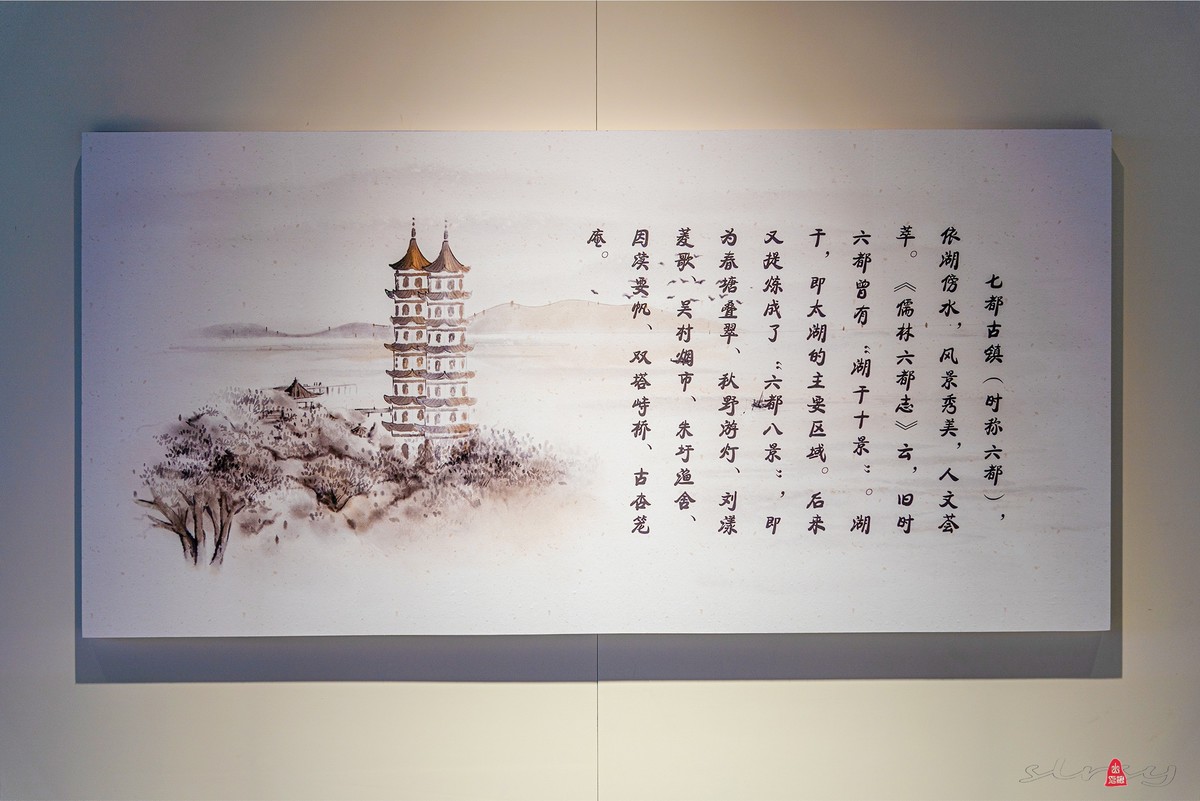 七都古镇（时称六都），
依湖傍水，风景秀美，人文荟
萃。《儒林六都志》云，旧时
六都曾有“湖干十景”。湖
干，即太湖的主要区域。后来
又提炼成了“六都八景”，即
为春塘叠翠、秋野游灯、刘漾
菱歌、吴村烟市、朱圩渔舍、
因要帆、双塔峙桥、古杏笼
庵。